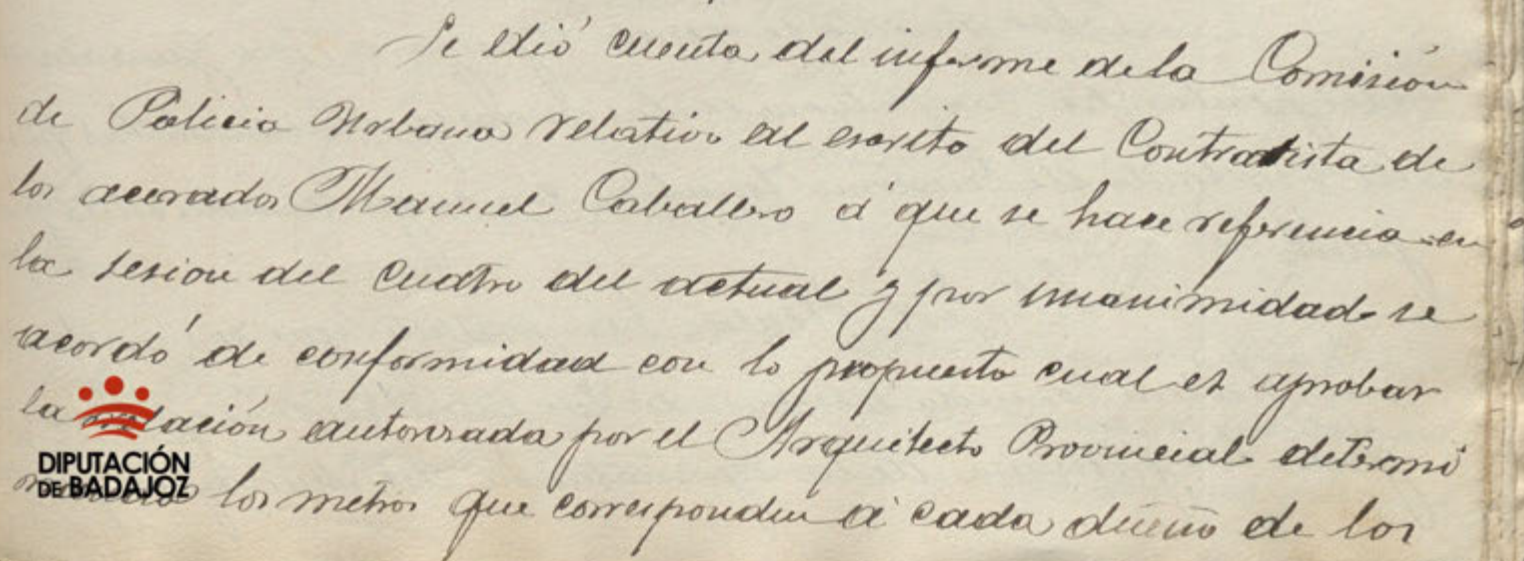 Se dió cuenta del informe de la Comisión
de Policia Urbana relativo al escrito del Contratista de
los acerados Manuel Caballero á que se hace referencia en
la sesion del cuatro del actual y por unanimidad se
acordó de conformidad con lo propuesto cual es aprobar
la relación autorizada por el Arquitecto Provincial determi
nando los metros que corresponden á cada dueño de los
DIPUTACIÓN
DE BADAJOZ